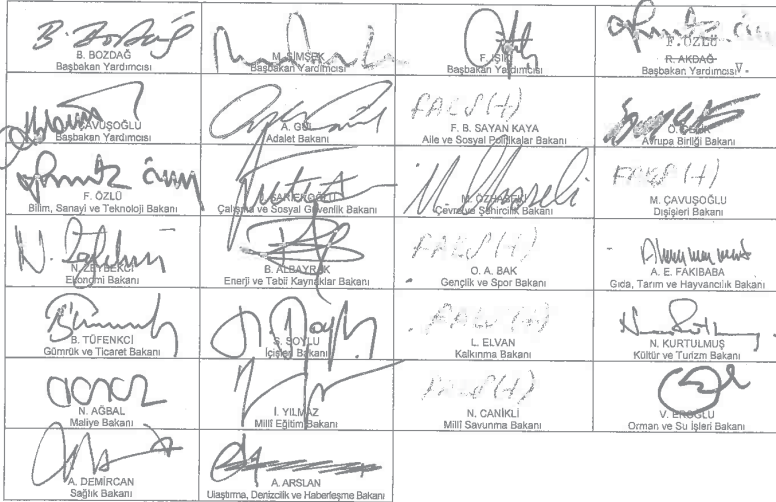 B. BOZDAĞ
Başbakan Yardımcısı
M. ŞİMŞEK
Başbakan Yardımcısı
F. IŞIK
Başbakan Yardımcısı
F. ÖZLÜ
R. AKDAĞ
Başbakan Yardımcısı V.
ÇAVUŞOĞLU
Başbakan Yardımcısı
A. GÜL
Adalet Bakanı
FAKS (+)
F. B. SAYAN KAYA
Aile ve Sosyal Politikalar Bakanı
Avrupa Birliği Bakanı
F. ÖZLÜ
Bilim, Sanayi ve Teknoloji Bakanı
SARIEROĞLU
Çalışma ve Sosyal Güvenlik Bakanı
M. ÖZHASEKİ
Çevre ve Şehircilik Bakanı
FAKS (+)
M. ÇAVUŞOĞLU
Dışişleri Bakanı
N. ZEYBEKCİ
Ekonomi Bakanı
B. ALBAYRAK
Enerji ve Tabii Kaynaklar Bakanı
FAKS (+)
O. A. BAK
Gençlik ve Spor Bakanı
A. E. FAKIBABA
Gıda, Tarım ve Hayvancılık Bakanı
B. TÜFENKCİ
Gümrük ve Ticaret Bakanı
S. SOYLU
İçişleri Bakanı
FAKS (+)
L. ELVAN
Kalkınma Bakanı
N. KURTULMUŞ
Kültür ve Turizm Bakanı
N. AĞBAL
Maliye Bakanı
İ. YILMAZ
Millî Eğitim Bakanı
FAKS (+)
N. CANİKLİ
Millî Savunma Bakanı
V. EROĞLU
Orman ve Su İşleri Bakanı
A. DEMİRCAN
Sağlık Bakanı
A. ARSLAN
Ulaştırma, Denizcilik ve Haberleşme Bakanı